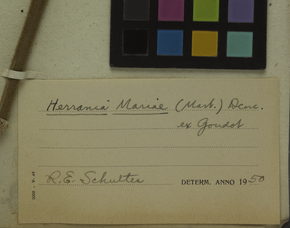 Herrania Mariae (Mart.) Dcne.
ex. Goudot
R. E. Schultes DETERM. ANNO 1950